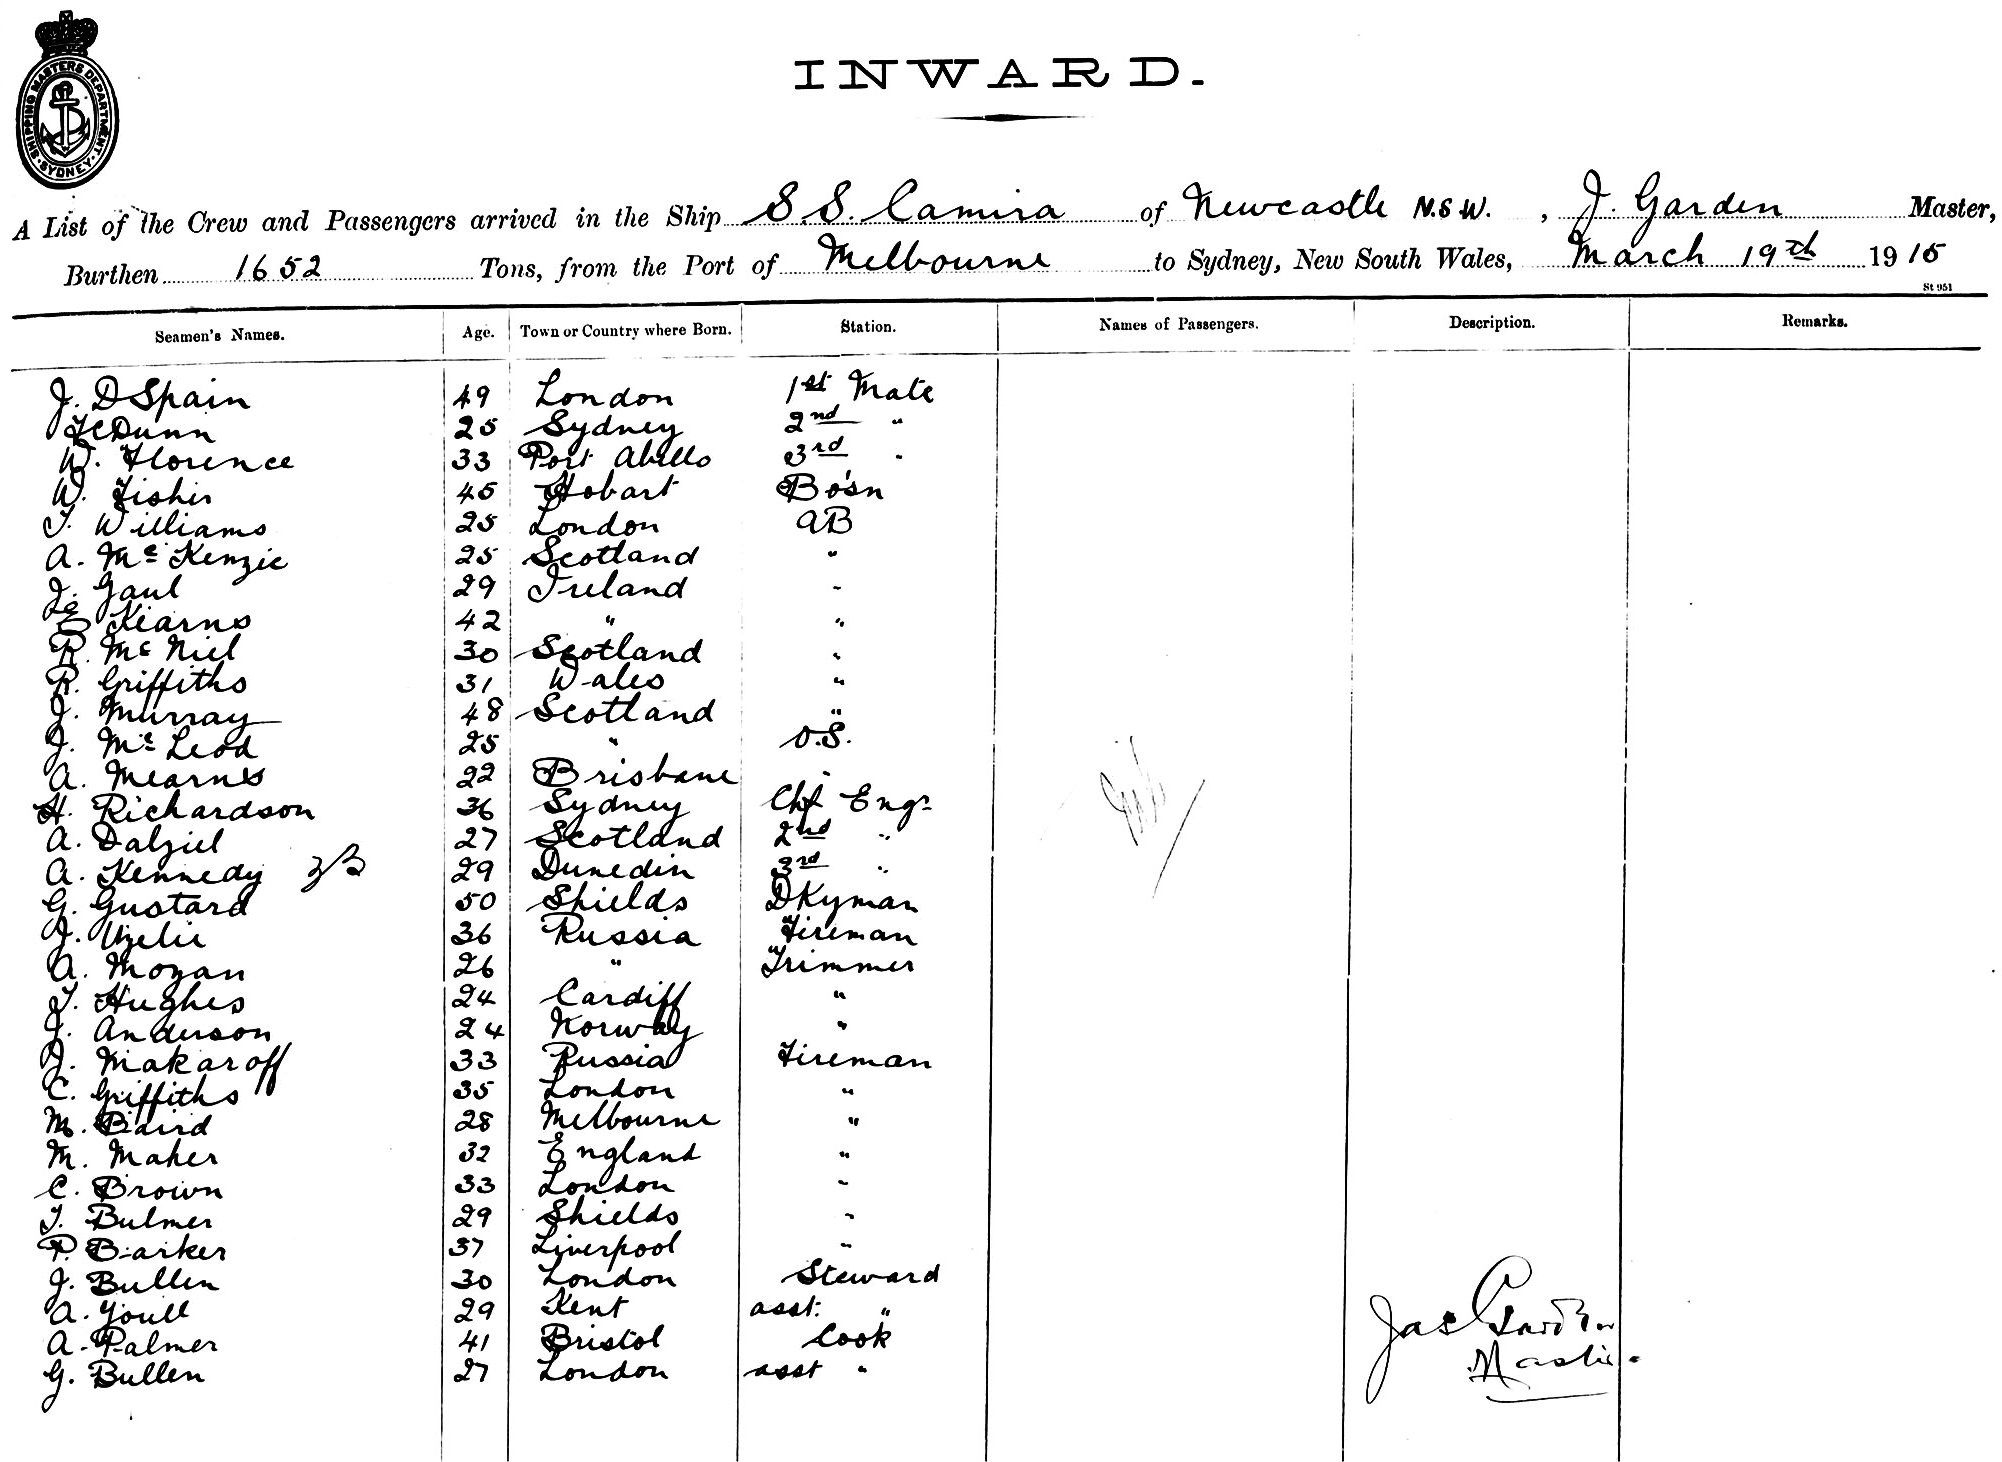 SHIPPING MASTERS DEPARTMENT · SYDNEY ·
INWARD.
A List of the Crew and Passengers arrived in the Ship S.S. Camira of Newcastle N.S.W. , J. Garden Master,
Burthen 1652 Tons, from the Port of Melbourne to Sydney, New South Wales, March 19th 1915
St 951
Seamen's Names. Age. Town or Country where Born. Station. Names of Passengers. Description. Remarks.
J. D Spain 49 London 1st Mate
Dunn 25 Sydney 2nd "
W. Florence 33 Port 3rd "
W. Fisher 45 Hobart Bo'sn
T. Williams 25 London AB
A. McKenzie 25 Scotland "
J. Gaul 29 Ireland "
Kearns 42 " "
R. McNiel 30 Scotland "
R. Griffiths 31 Wales "
J. Murray 48 Scotland "
J. McLeod 25 " O.S.
A. Mearns 22 Brisbane "
H. Richardson 36 Sydney Chf Engr
A. Dalziel 27 Scotland 2nd "
A. Kennedy 29 Dunedin 3rd "
G. Gustard 50 Shields DKyman
J. Uzelie 36 Russia Fireman
A. Mozan 26 " Trimmer
T. Hughes 24 Cardiff "
J. Anderson 24 Norway "
J. Makaroff 33 Russia Fireman
C. Griffiths 35 London "
M. Baird 28 Melbourne "
M. Maher 32 England "
C. Brown 33 London "
T. Bulmer 29 Shields "
P. Barker 37 Liverpool "
J. Bullen 30 London Steward
A. Youll 29 Kent asst. "
A. Palmer 41 Bristol Cook
G. Bullen 27 London asst "
Jas Garden
Master